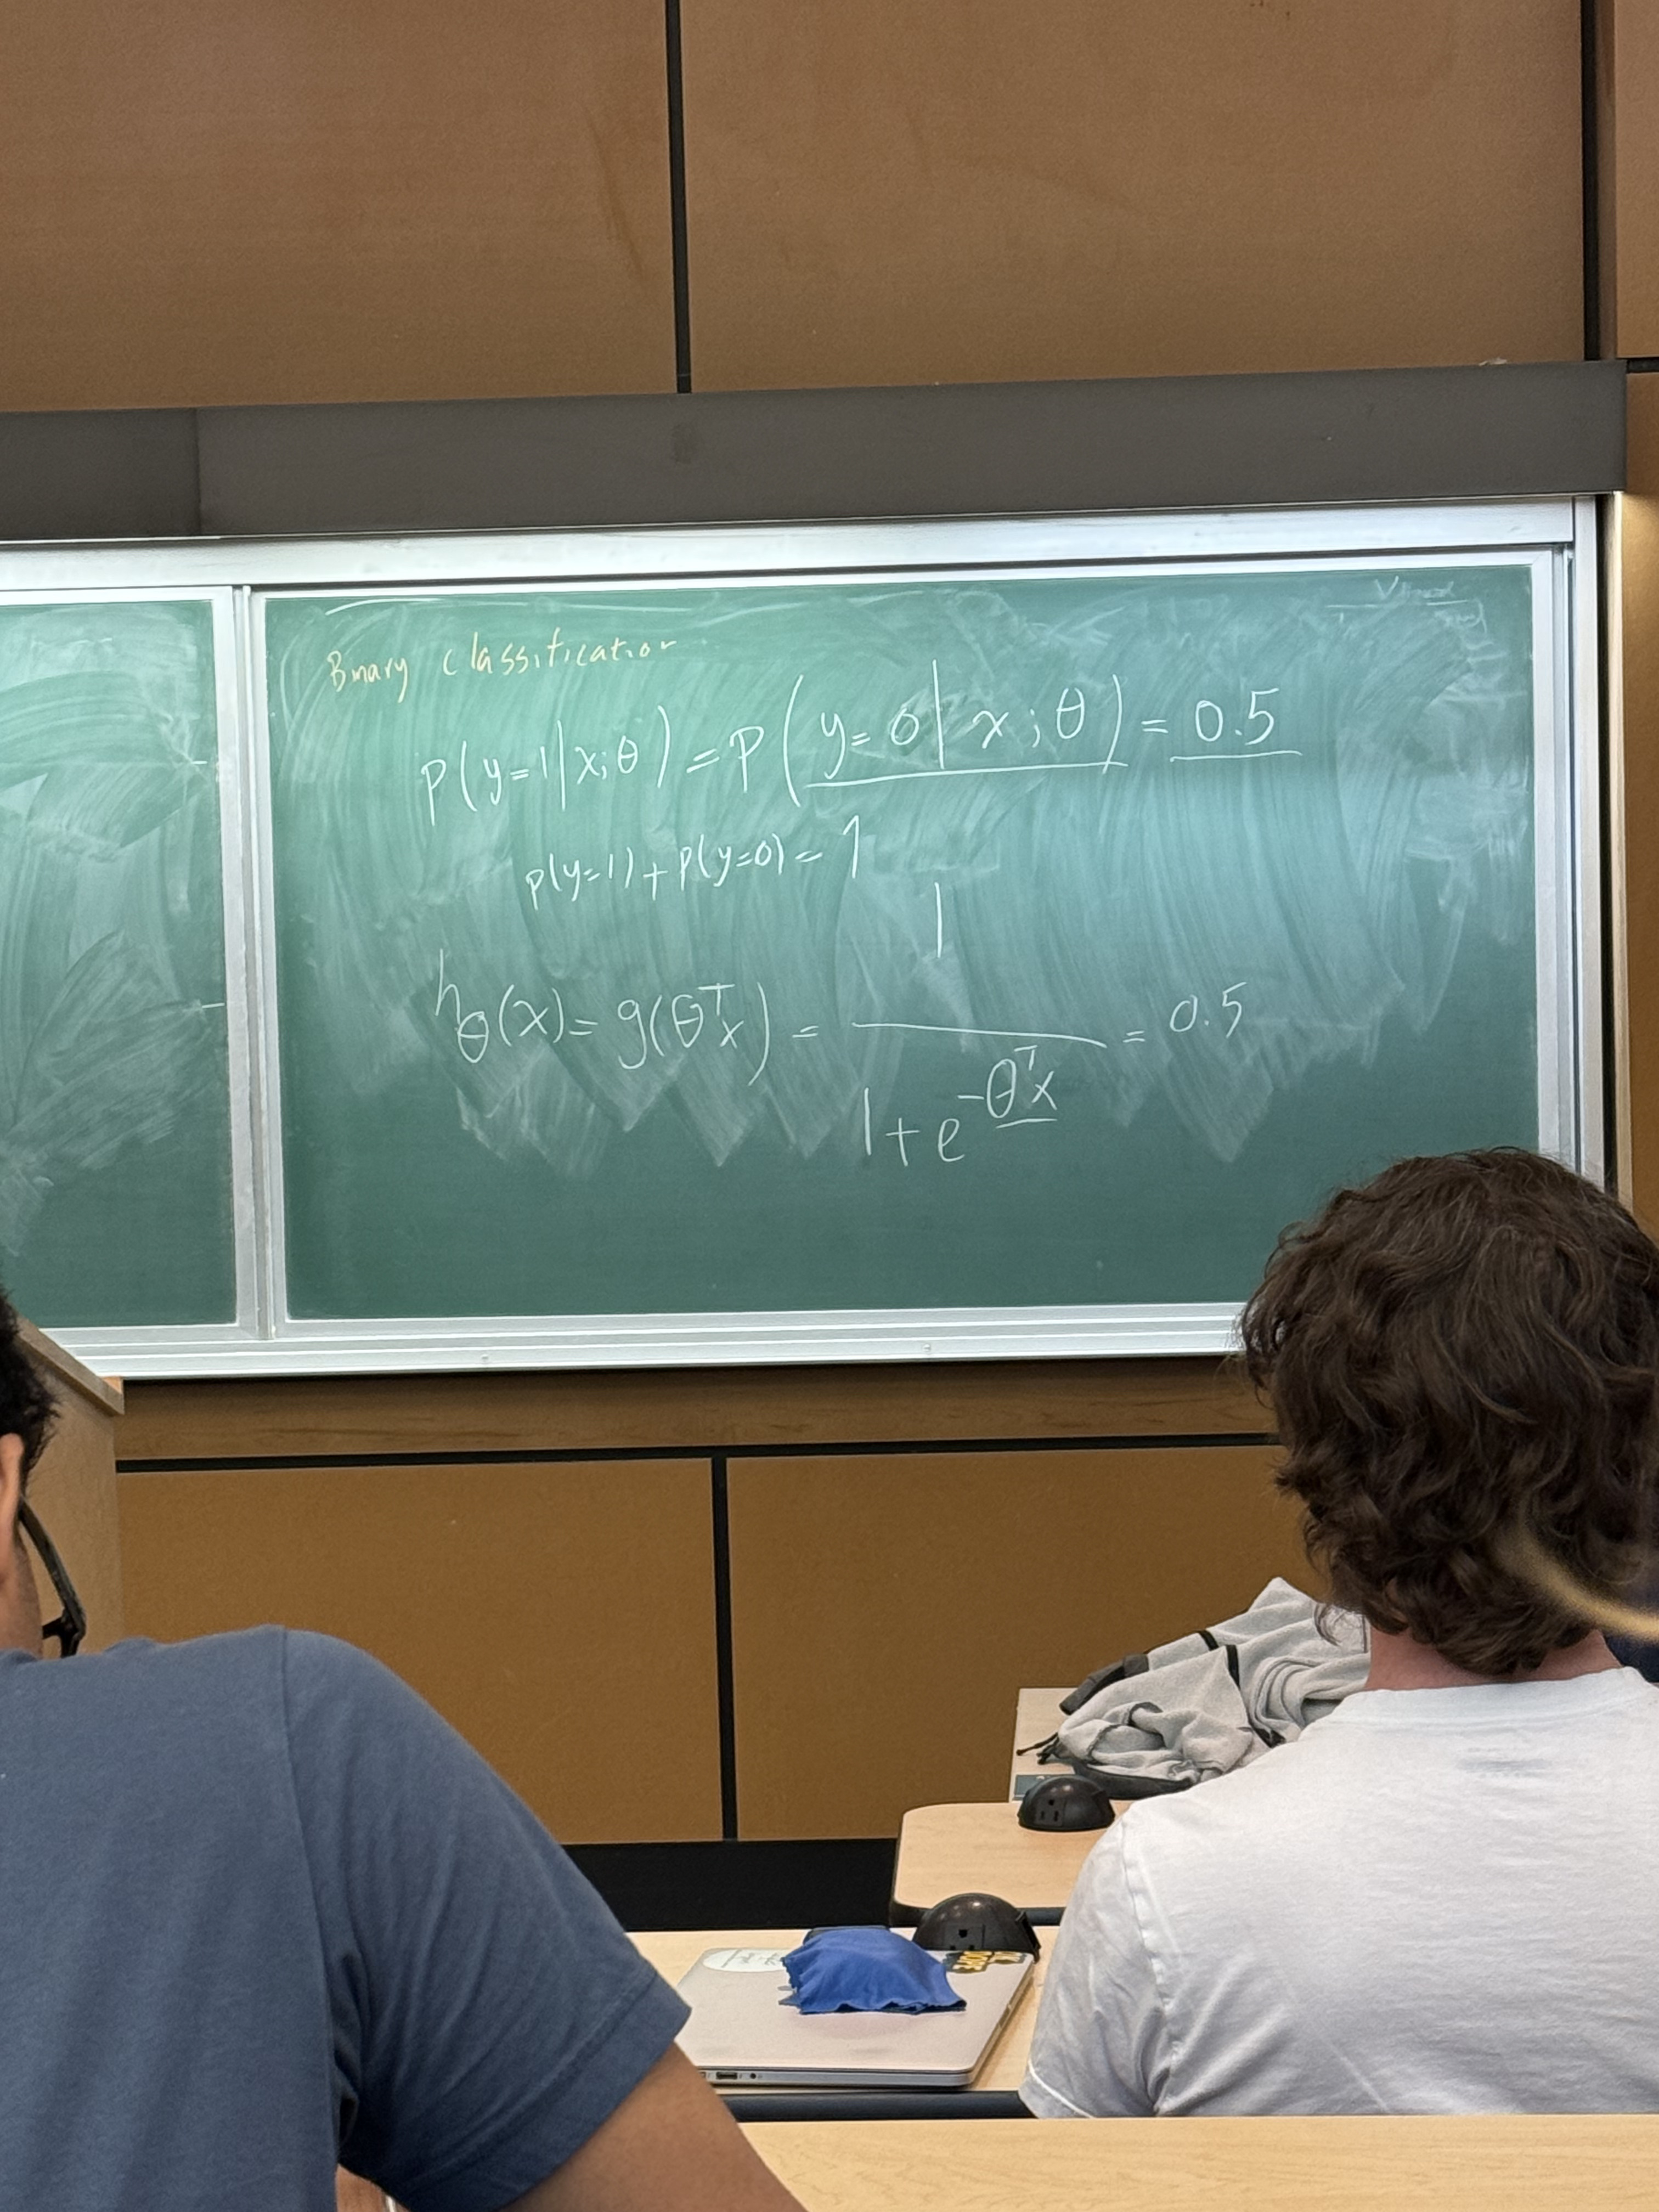 Binary Classification
p(y=1|x;θ) = p(y=0|x;θ) = 0.5
p(y=1) + p(y=0) = 1
h_θ(x) = g(θᵀx) = 1 / (1 + e^(-θᵀx)) = 0.5